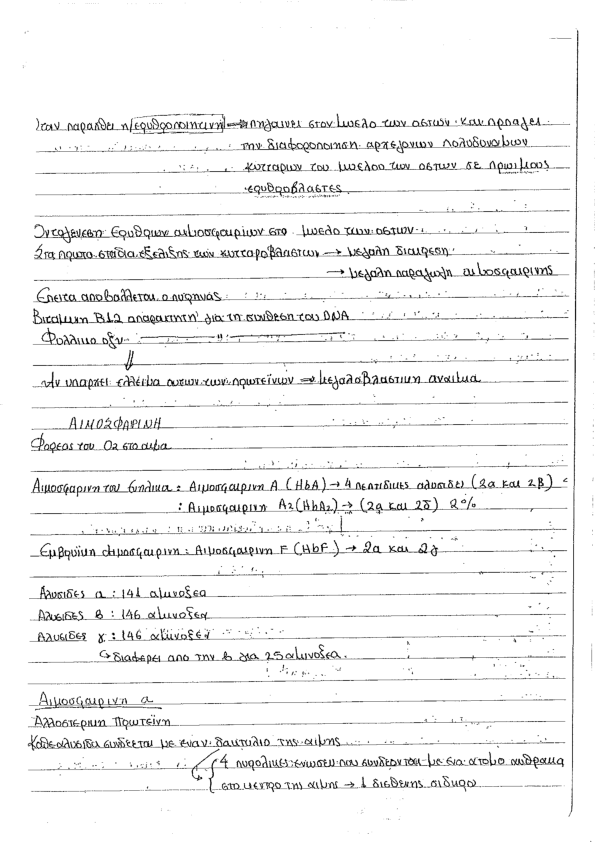 Όταν παραχθει η ερυθροποιητινη → πηγαινει στον μυελο των οστων και προαγει
την διαφοροποιηση αρχεγονων πολυδυναμων
κυτταρων του μυελου των οστων σε πρωιμους
ερυθροβλαστες
ερυθρων αιμοσφαιριων στο μυελο των οστων
Στα πρωτα σταδια εξελιξης των κυτταροβλαστων → μεγαλη διαιρεση
→ μεγαλη παραγωγη αιμοσφαιρινης
Επειτα αποβαλλεται ο πυρηνας
Βιταμινη B12 απαραιτητη για τη συνθεση του DNA
Φολλικο οξυ ——— " ———
⇓
Αν υπαρχει ελλειμα αυτων των πρωτεϊνων ⇒ μεγαλοβλαστικη αναιμια
ΑΙΜΟΣΦΑΡΙΝΗ
Φορεας του O2 στο αιμα
Αιμοσφαρινη του ενηλικα : Αιμοσφαιρινη A (HbA) → 4 πεπτιδικες αλυσιδες (2α και 2β)
: Αιμοσφαιρινη A2 (HbA2) → (2α και 2δ) 2%
Εμβρυϊκη αιμοσφαιρινη : Αιμοσφαιρινη F (HbF) → 2α και 2γ
Αλυσιδες α : 141 αμινοξεα
Αλυσιδες β : 146 αμινοξεα
Αλυσιδες γ : 146 αμινοξεα
↳ διαφερει απο την β για 25 αμινοξεα.
Αιμοσφαιρινη α
Αλλοστερικη Πρωτεϊνη
Καθε αλυσιδα συνδεεται με εναν δακτυλιο της αιμης
4 πυρολικες ενωσεις που συνδεονται με ενα ατομο ανθρακα
στο κεντρο της αιμης → 1 δισθενης σιδηρο